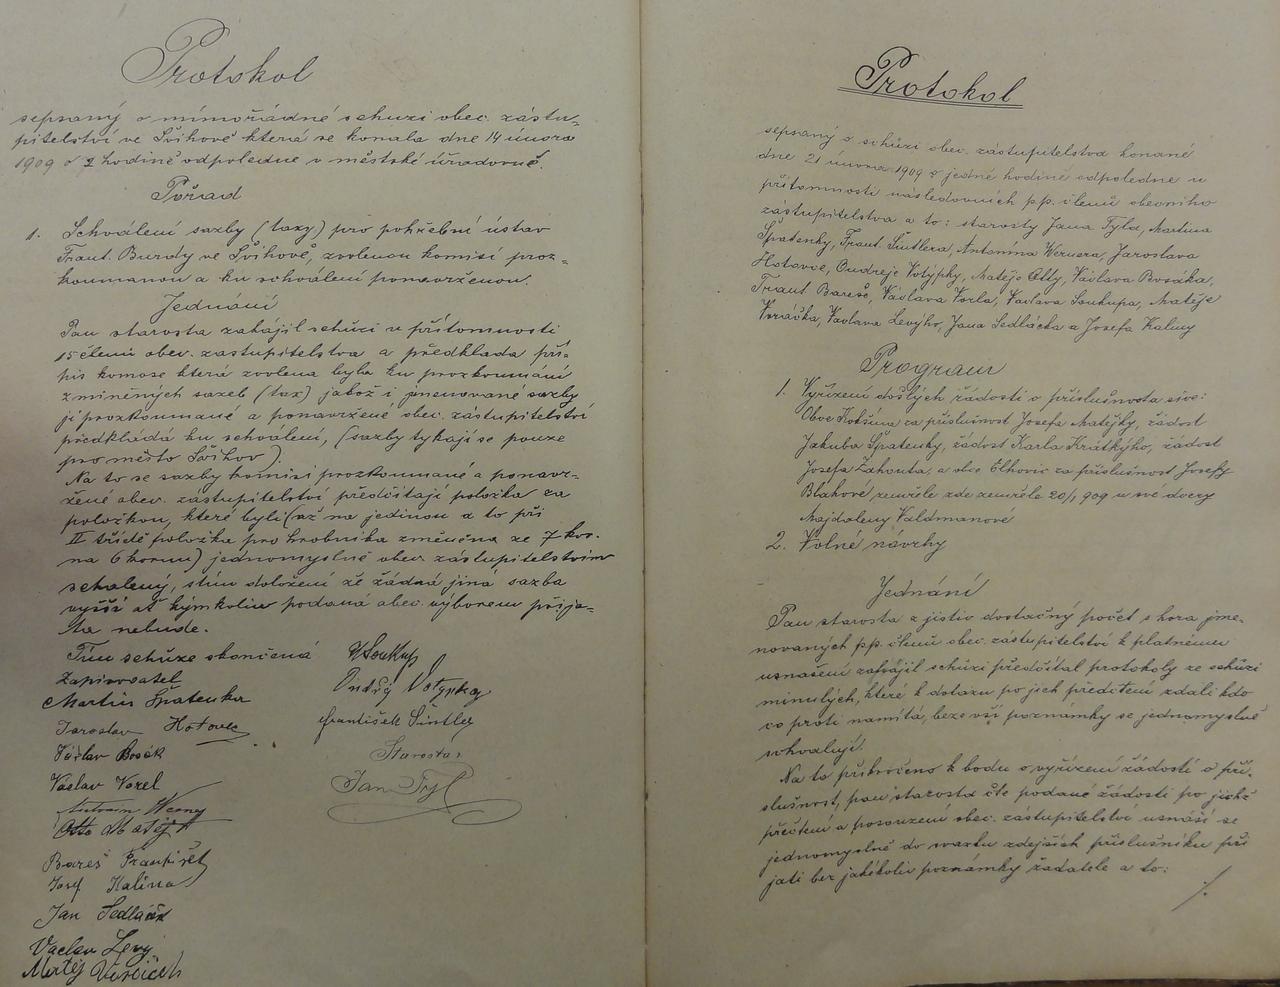 Protokol
sepsaný o mimořádné schuzi obec. zástu-
pitelství ve Švihově která se konala dne 14 února
1909 o 2 hodině odpoledne v městské úřadovně.
Pořad
1. Schválení sazby (taxy) pro pohřební ústav
Frant. Burdy ve Švihově, zvolenou komisí proz-
koumanou a ku schválení ponavrženou.
Jednání
Pan starosta zahájil schůzi u přítomnosti
15 členů obec. zastupitelstva a předkládá pří-
pis komise která zvolena byla ku prozkoumání
zmíněných sazeb (tax) jakož i jmenované sazby
jí prozkoumané a ponavržené obec. zástupitelství
předkládá ku schválení, (sazby tykají se pouze
pro město Švihov).
Na to se sazby komisí prozkoumané a ponavr-
žené obec. zástupitelství předčítají položka za
položkou, které byli (až na jedinou a to při
II třídě položka pro hrobníka změněna ze 7 kor.
na 6 korun) jednomyslně obec. zástupitelstvím
schalený, stím doložení že žádná jiná sazba
vyšší ať kýmkoliv podaná obec. výborem přija-
ta nebude.
Tím schůze skončená
Zapisovatel
Martin Špatenka
Jaroslav Hotovec
Václav Bosák
Václav Vorel
Antonín Werner
Otto Matěj
Bareš František
Josef Kalina
Jan Sedláček
Vaclav Levy
Matěj Voráček
V Soukup
Ondřej Votypka
František Šintler
Starosta:
Jan Tyl
Protokol
sepsaný o schůzi obec. zástupitelstva konané
dne 21 února 1909 o jedné hodině odpoledne u
přítomnosti následovních p.p. členů obecního
zástupitelstva a to: starosty Jana Tyla, Martina
Špatenky, Frant. Šintlera, Antonína Wernera, Jaroslava
Hotovce, Ondreje Votýpky, Matěje Otty, Václava Bosáka,
Frant Bareše, Václava Vorla, Vaclava Soukupa, Matěje
Voráčka, Vaclava Levýho, Jana Sedláčka a Josefa Kaliny
Program
1. Vyřízení došlých žádostí o příslušnosta sice:
Obce Kokšína za příslušnost Josefa Matějky, žádost
Jakuba Špatenky, žádost Karla Krátkýho, žádost
Josefa Žahouta, a obce Elhovic za příslušnost Josefy
Blahové zemřele zde zemřele 20/1 909 u své dcery
Majdaleny Valdmanové
2. Volné návrhy
Jednání
Pan starosta z jistiv dostačný počet s hora jme-
novaných p.p. členů obec. zástupitelství k platnému
usnašení zahájil schůzi předčítal protokoly ze schůzí
minulých, které k dotazu po jich předčtení zdali kdo
co proti namítá, beze vší poznámky se jednomyslně
schvalují.
Na to přikročeno k bodu o vyřízení žádostí o pří-
slušnost, pan starosta čte podané žádosti po jichž
přečtení a posouzení obec. zástupitelství usnáší se
jednomyslně do svazku zdejších příslušníku při
jati bez jakékoliv poznámky žadatele a to:
./.